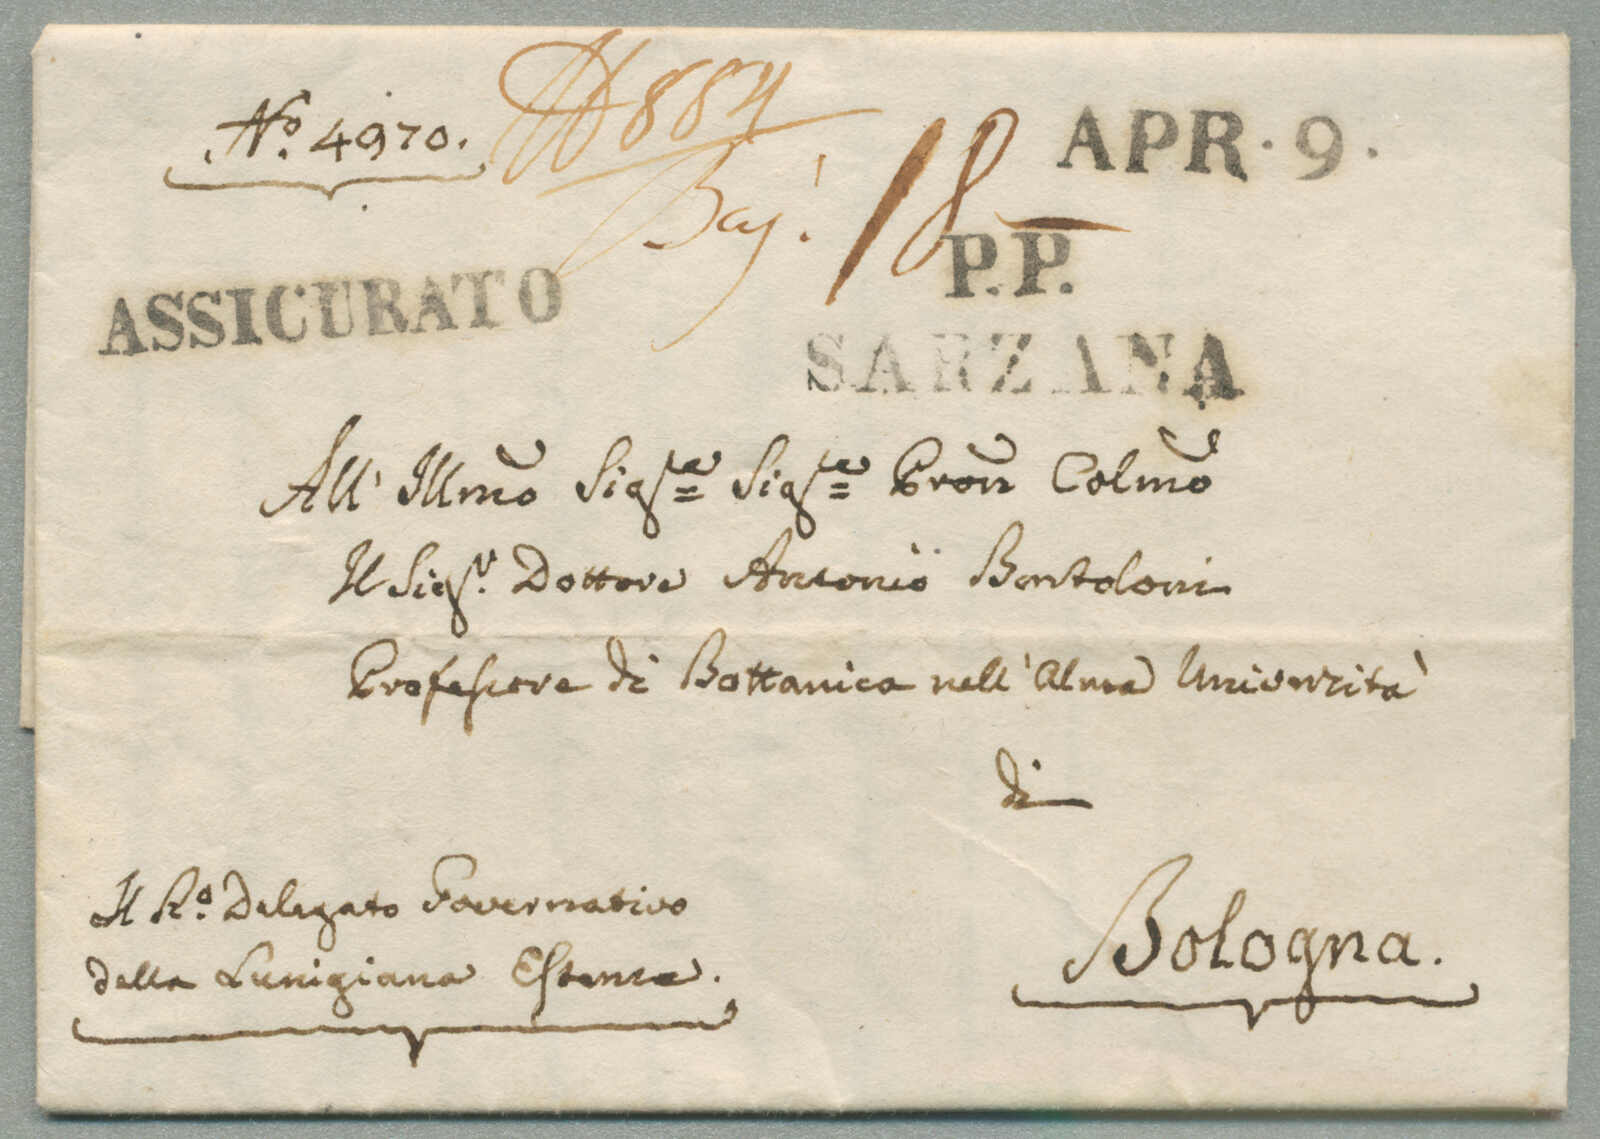 No. 4970.
884
Baj. 18
APR. 9.
P.P.
ASSICURATO
SARZANA
All' Illmo Sigre Sigre Pron Colmo
Il Sigr. Dottore Antonio Bertoloni
Professore di Bottanica nell' Alma Università
di
Il Ro. Delegato Governativo
della Lunigiana Estense.
Bologna.